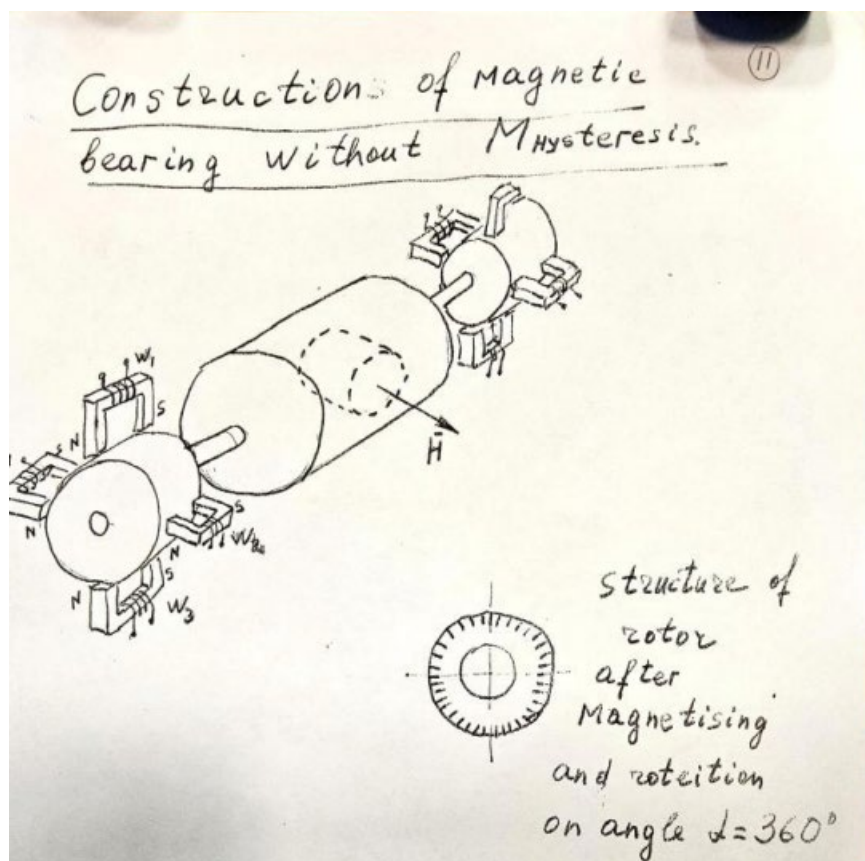 11
Constructions of magnetic
bearing without M Hysteresis.
W1
S
N
S
N
S
N
W2
N
S
W3
H̄
structure of
rotor
after
Magnetising
and roteition
on angle α=360°